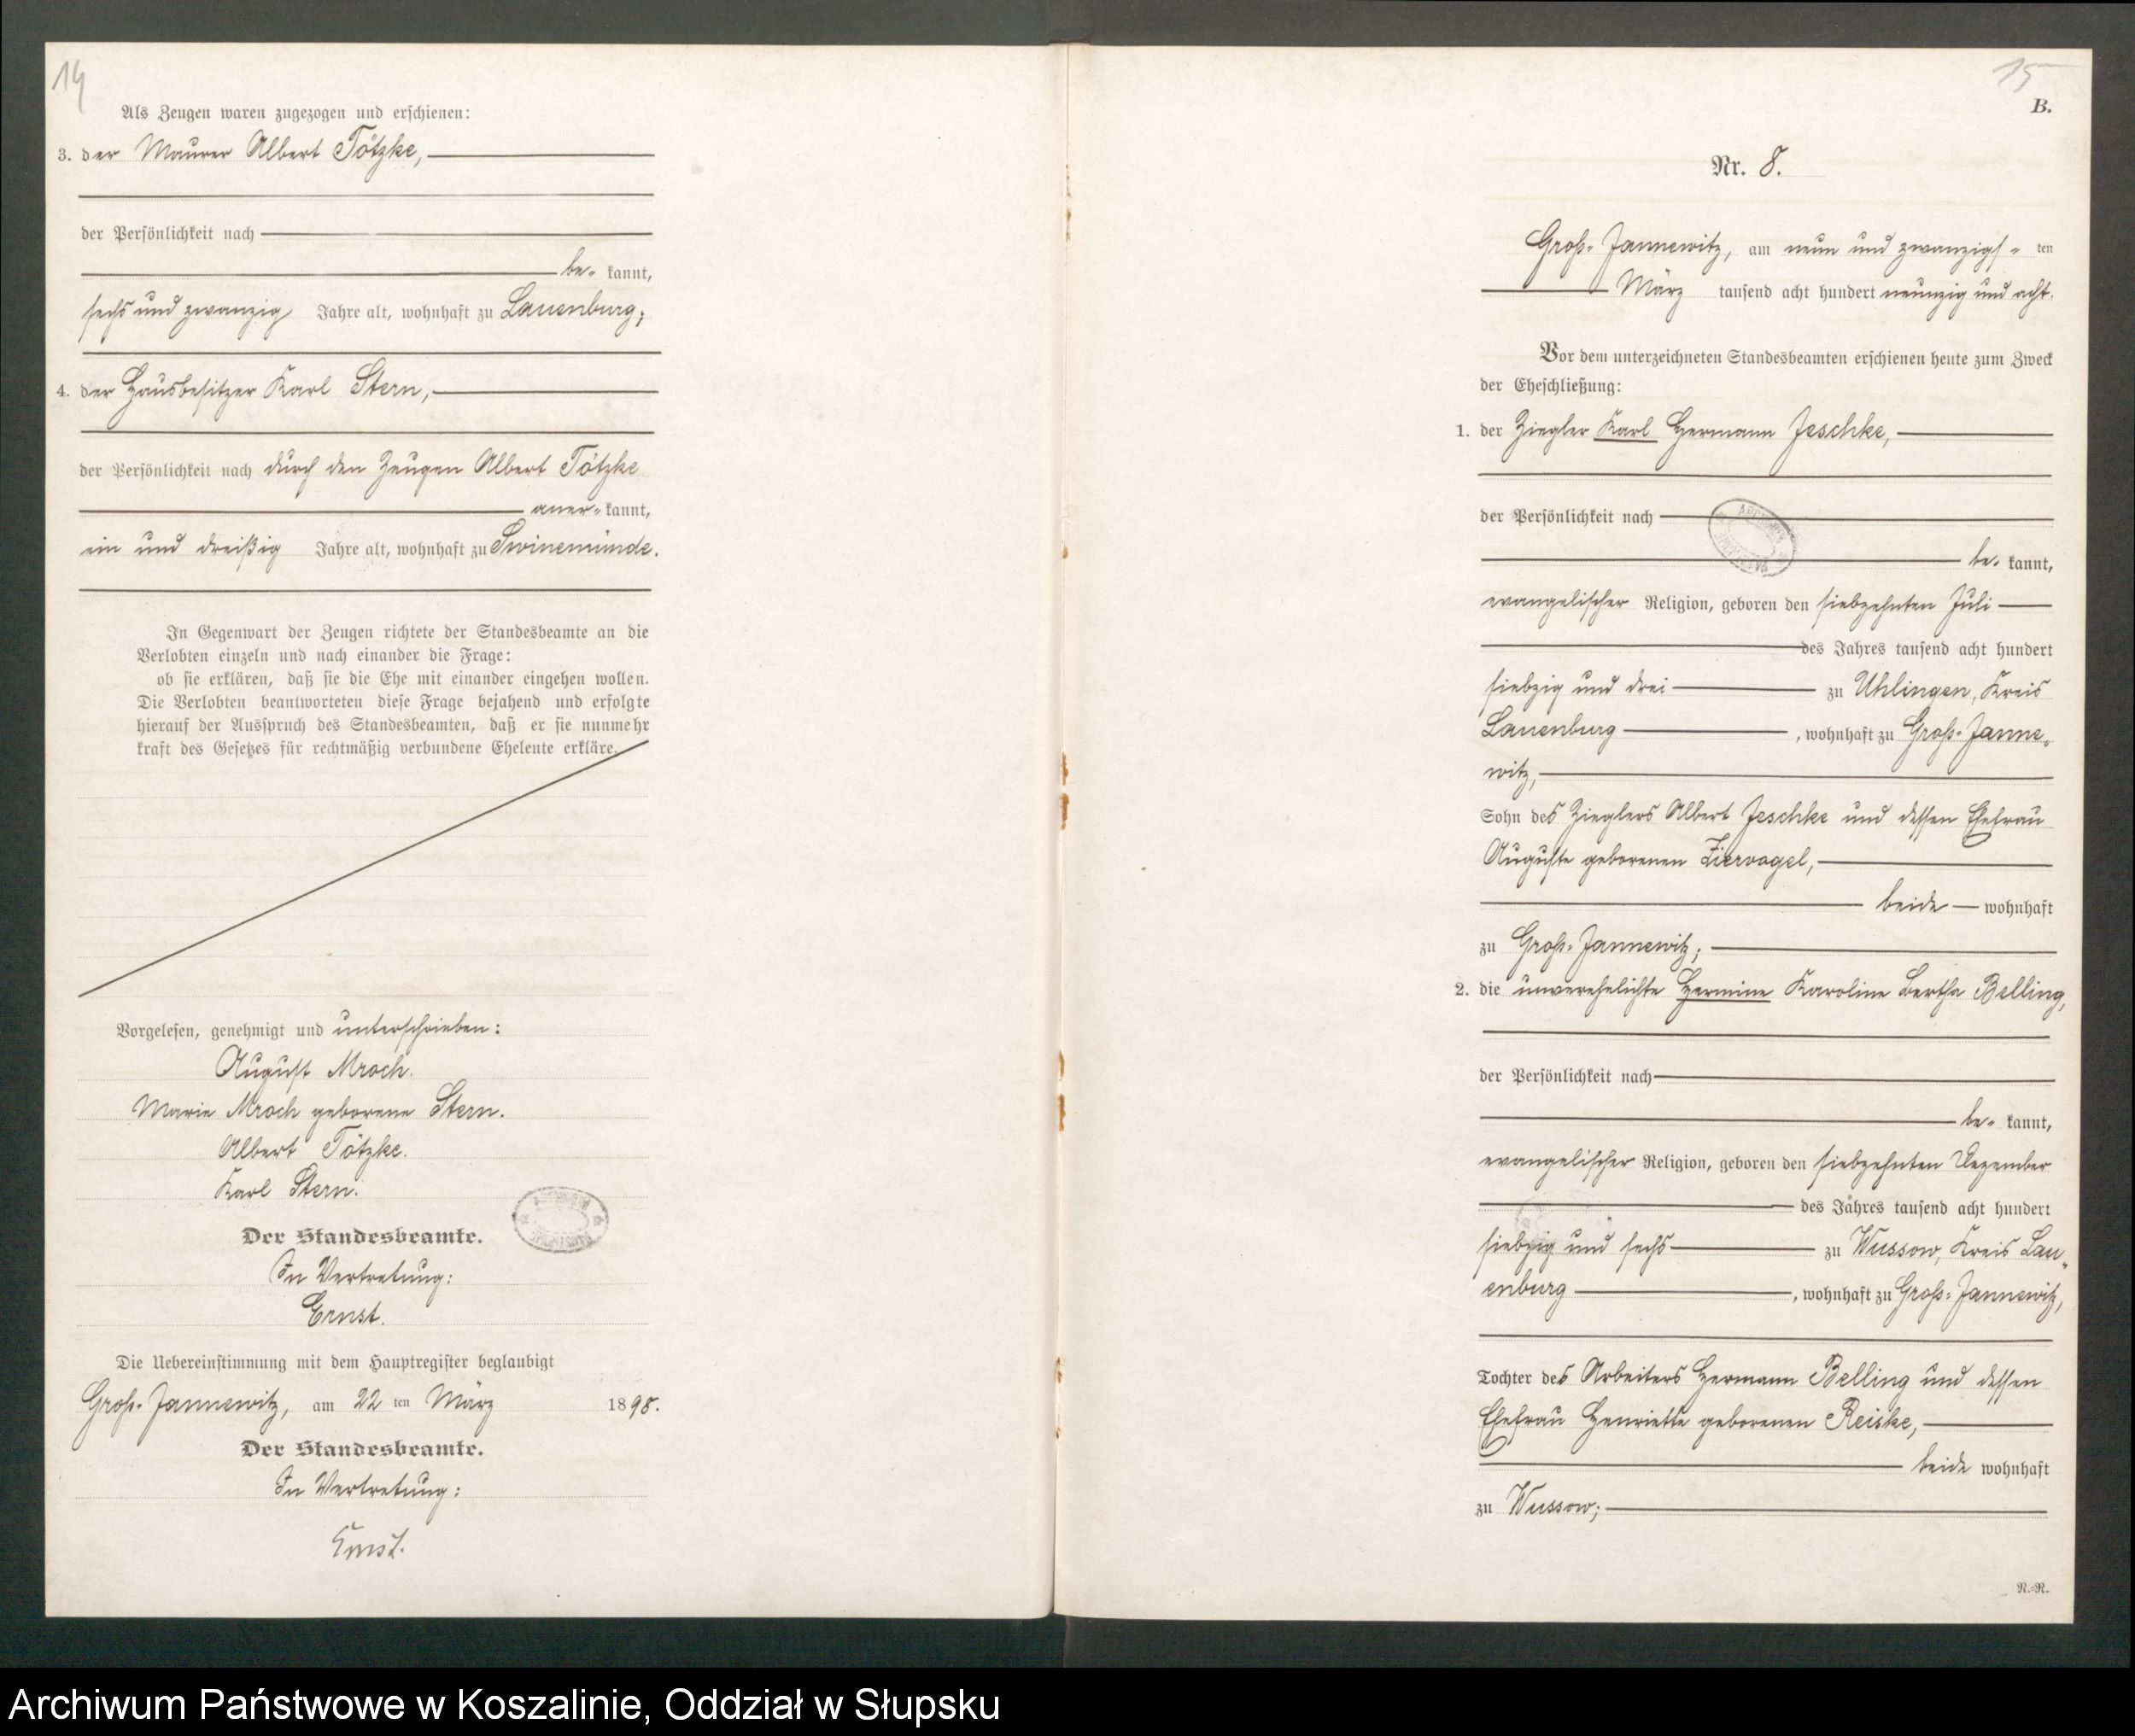 14
Als Zeugen waren zugezogen und erschienen:
3. der Maurer Albert Tötzke,
der Persönlichkeit nach
be- kannt,
sechs und zwanzig Jahre alt, wohnhaft zu Lauenburg;
4. der Hausbesitzer Karl Stern,
der Persönlichkeit nach durch den Zeugen Albert Tötzke
aner- kannt,
ein und dreißig Jahre alt, wohnhaft zu Swinemünde.
In Gegenwart der Zeugen richtete der Standesbeamte an die
Verlobten einzeln und nach einander die Frage:
ob sie erklären, daß sie die Ehe mit einander eingehen wollen.
Die Verlobten beantworteten diese Frage bejahend und erfolgte
hierauf der Ausspruch des Standesbeamten, daß er sie nunmehr
kraft des Gesetzes für rechtmäßig verbundene Eheleute erkläre.
Vorgelesen, genehmigt und unterschrieben:
August Mroch.
Marie Mroch geborene Stern.
Albert Tötzke.
Karl Stern.
Der Standesbeamte.
In Vertretung:
Ernst.
Die Uebereinstimmung mit dem Hauptregister beglaubigt
Groß-Jannewitz, am 22 ten März 1898.
Der Standesbeamte.
In Vertretung:
Ernst.
15
B.
Nr. 8.
Groß-Jannewitz, am neun und zwanzigs- ten
März tausend acht hundert neunzig und acht.
Vor dem unterzeichneten Standesbeamten erschienen heute zum Zweck
der Eheschließung:
1. der Ziegler Karl Hermann Jeschke,
der Persönlichkeit nach
be- kannt,
evangelischer Religion, geboren den siebzehnten Juli
des Jahres tausend acht hundert
siebzig und drei zu Uhlingen, Kreis
Lauenburg, wohnhaft zu Groß-Janne-
witz,
Sohn des Zieglers Albert Jeschke und dessen Ehefrau
Auguste geborenen Ziervogel,
beide wohnhaft
zu Groß-Jannewitz;
2. die unverehelichte Hermine Karoline Bertha Belling,
der Persönlichkeit nach
be- kannt,
evangelischer Religion, geboren den siebzehnten Dezember
des Jahres tausend acht hundert
siebzig und sechs zu Wussow, Kreis Lau-
enburg, wohnhaft zu Groß-Jannewitz,
Tochter des Arbeiters Hermann Belling und dessen
Ehefrau Henriette geborenen Reiske,
beide wohnhaft
zu Wussow;
N.-R.
Archiwum Państwowe w Koszalinie, Oddział w Słupsku